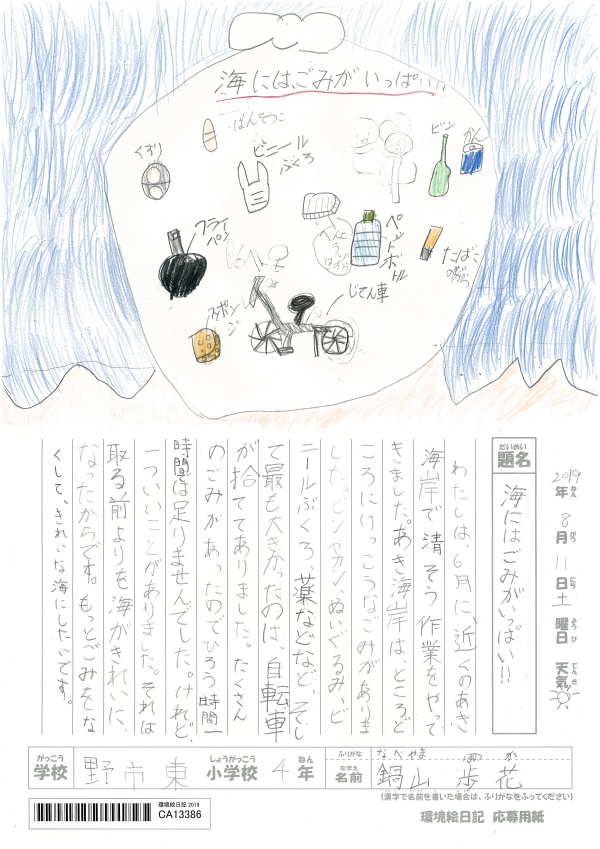 海にはごみがいっぱい!!
ばんそうこ
くすり
ビニールぶくろ
ビン
かん
フライパン
ペットボトル
たばこ
スポンジ
じてん車
2019年8月11日土曜日 天気
ねん
がつ
にち
ようび
てんき
だいめい
題名
海にはごみがいっぱい!!
わたしは、6月に、近くのあき
海岸で清そう作業をやって
きました。あき海岸は、ところど
ころにけっこうなごみがありま
した。ビンやカン、ぬいぐるみ、ビ
ニールぶくろ、薬などなど、そし
て最も大きかったのは、自転車
が捨ててありました。たくさん
のごみがあったのでひろう時間一
時間は足りませんでした。けれど、
一ついいことがありました。それは
取る前よりを海がきれいに、
なったからです。もっとごみをな
くして、きれいな海にしたいです。
がっこう
しょうがっこう
ねん
学校 野市東 小学校 4年
ふりがな なべやま ほのか
なまえ
名前 鍋山 歩花
(漢字で名前を書いた場合は、ふりがなをふってください)
環境絵日記 2019
CA13386
環境絵日記 応募用紙